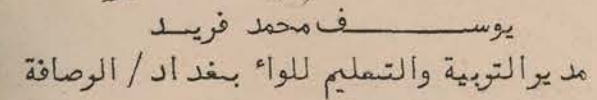 يوســـــــــف محمد فريــد
مديرالتربية والتعليم للواء بغداد / الوصافة